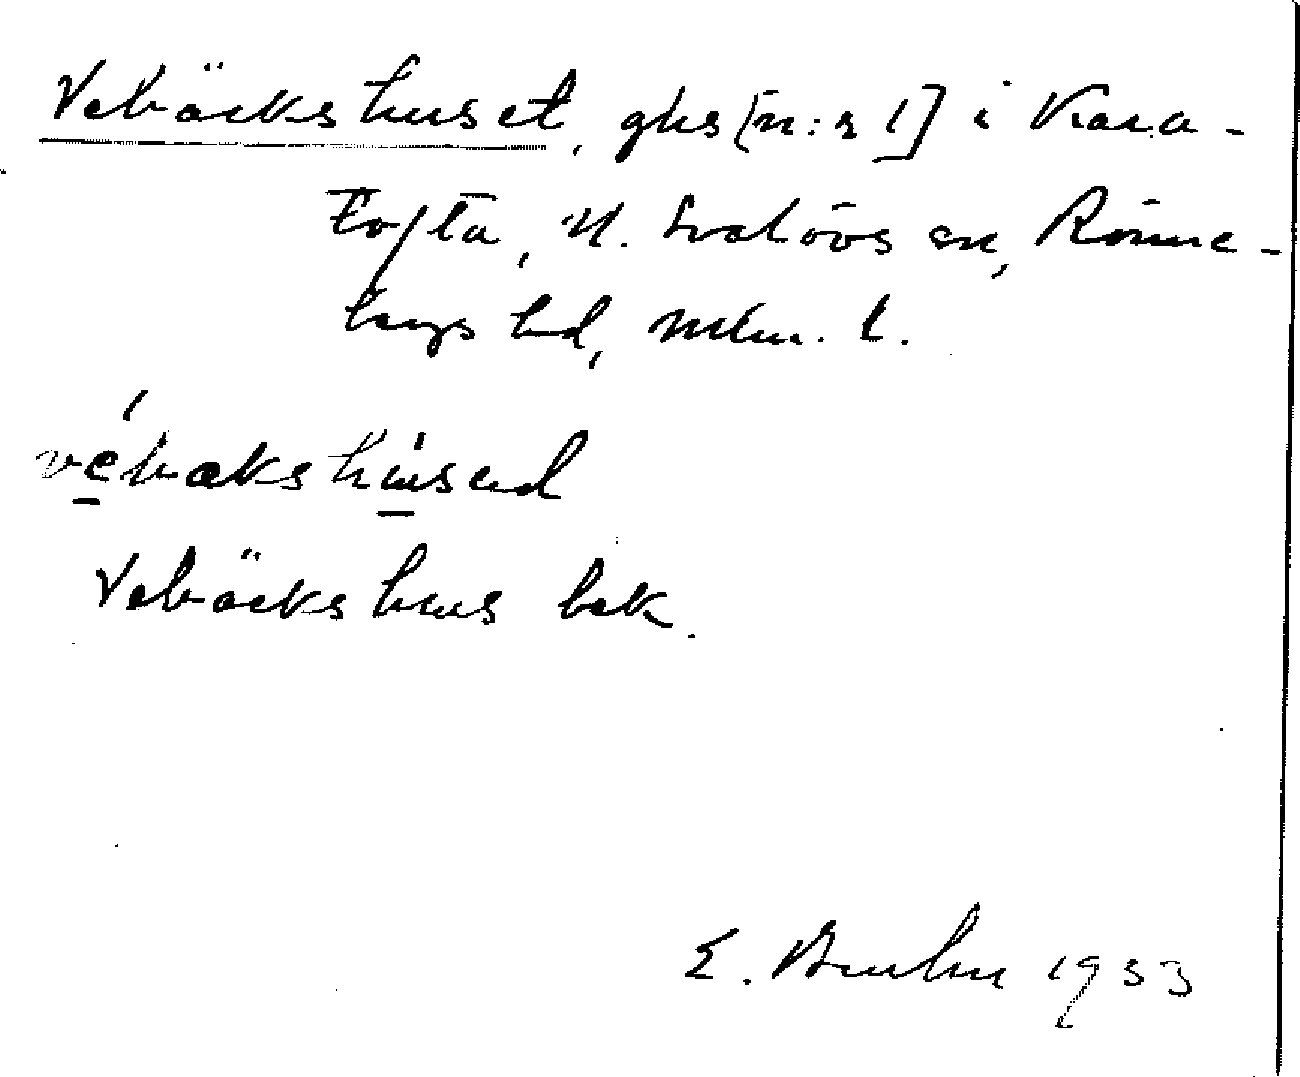 Vebäckshuset, ghs [n:r 1] i Kara-
tofta, N. Svalövs sn, Rönne-
bergs hd, Mlm. l.
vébækshúsed
Vebäckshus bek.
E. Bruhn 1933